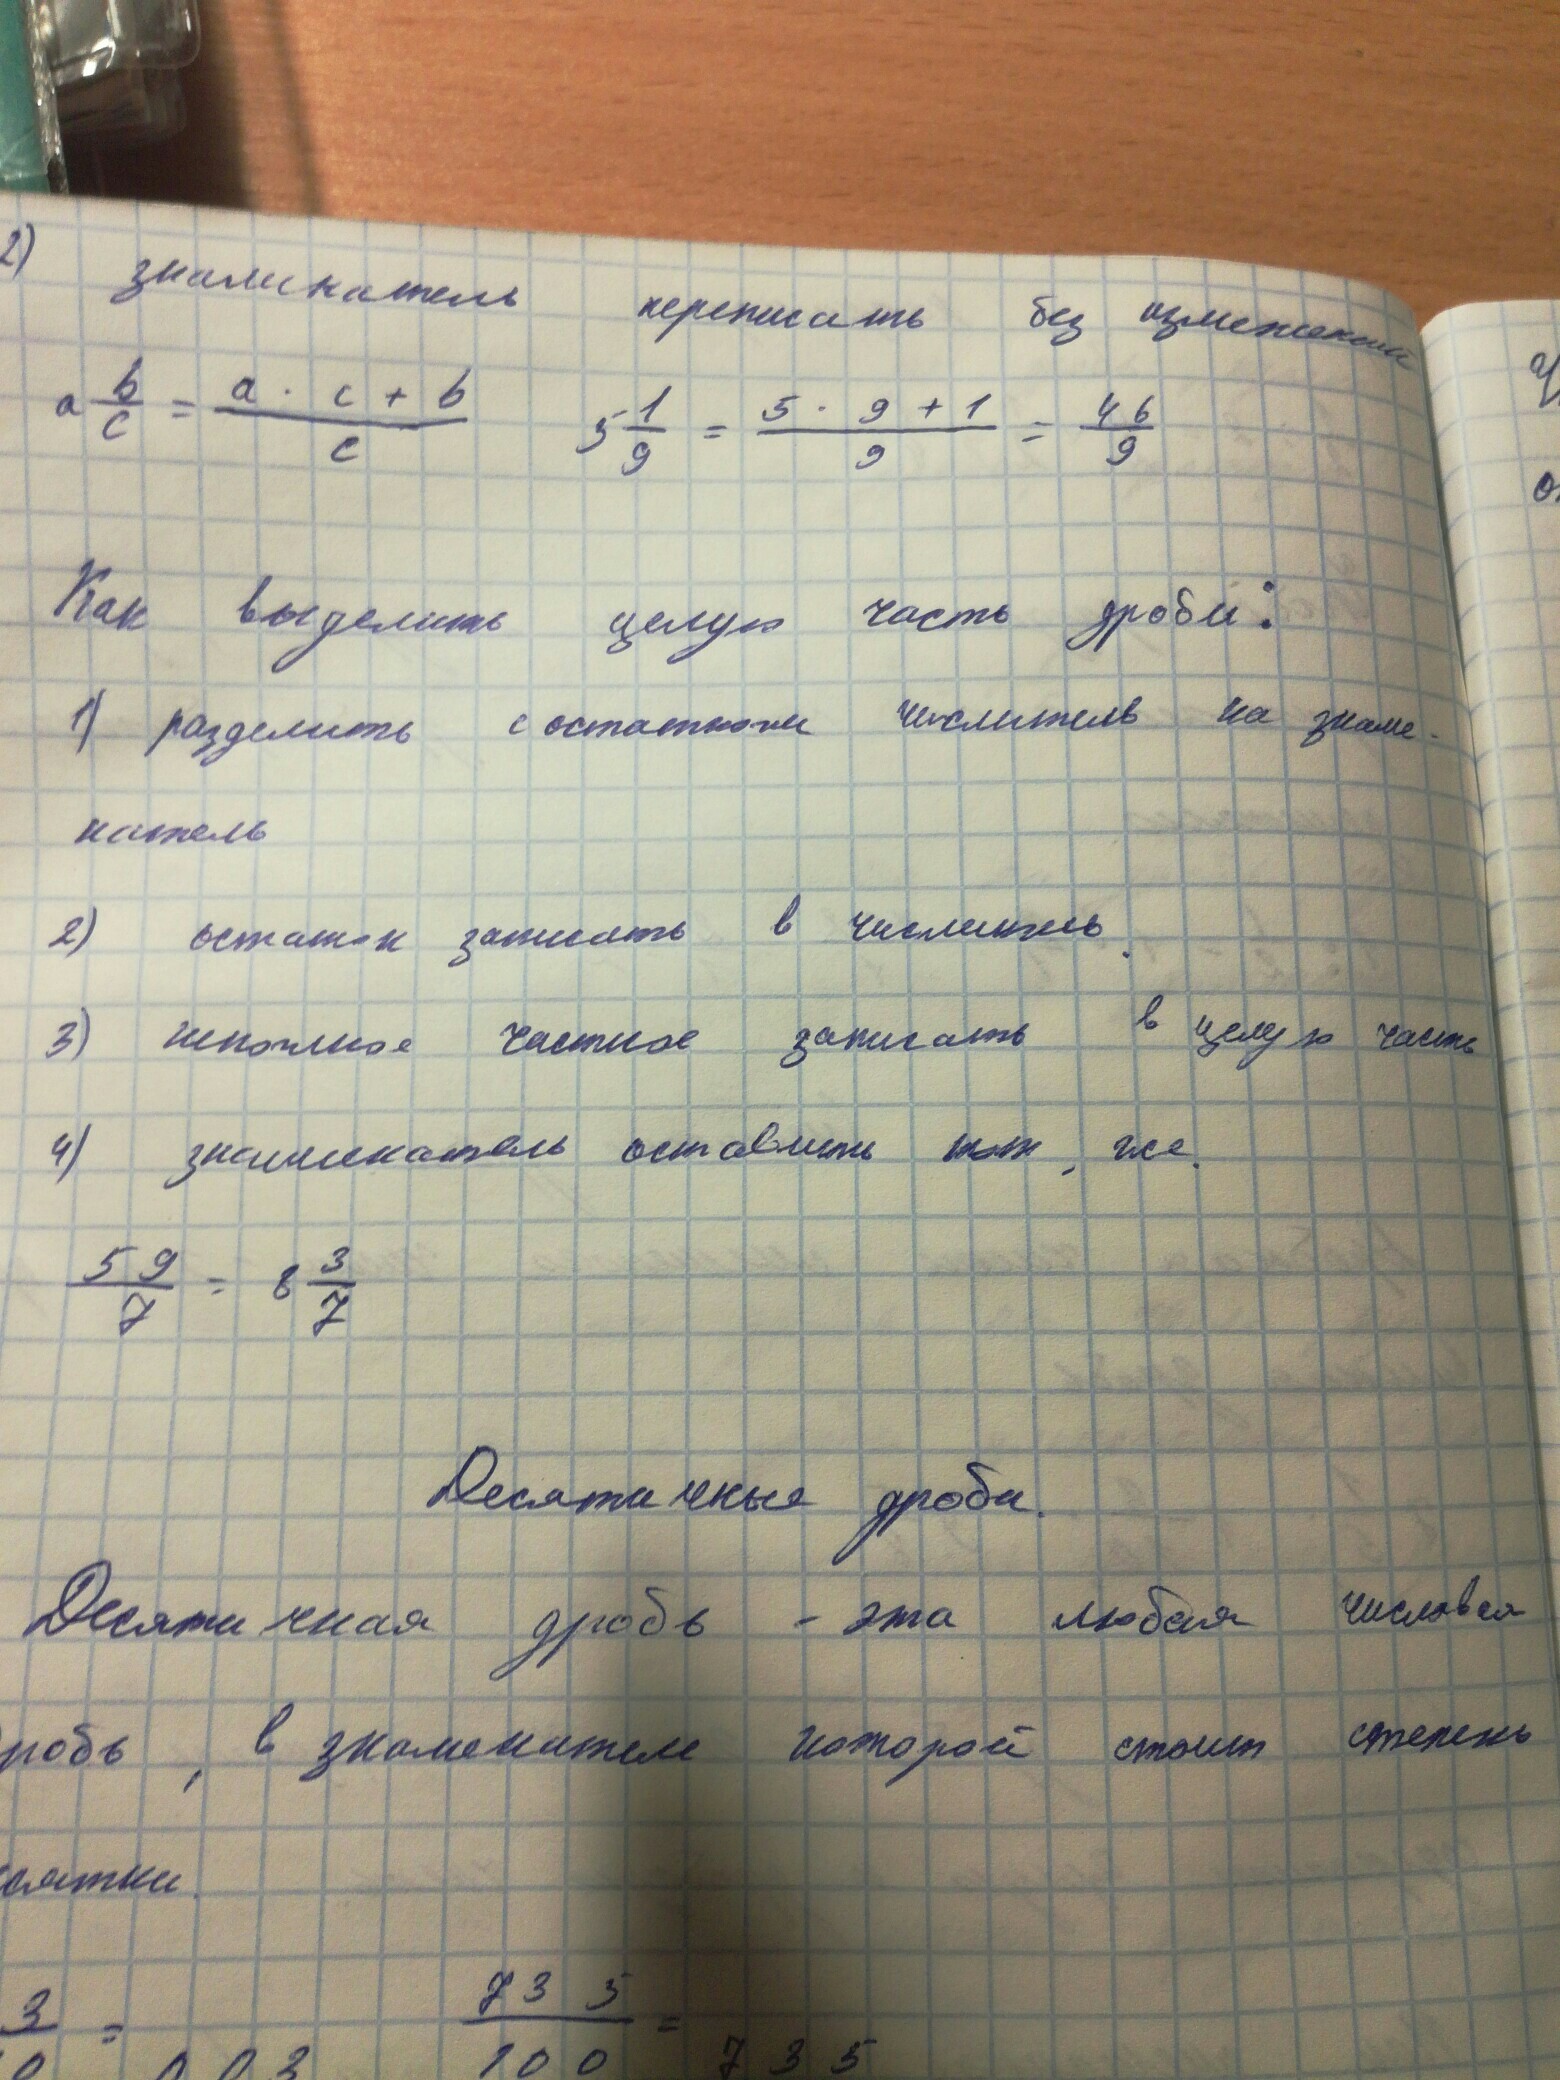 2) знаменатель переписать без изменений
a b/c = a · c + b / c    5 1/9 = 5 · 9 + 1 / 9 = 46/9
Как выделить целую часть дроби:
1) разделить с остатком числитель на знаме-
натель
2) остаток записать в числитель.
3) неполное частное записать в целую часть
4) знаменатель оставить тот, же.
59/7 = 8 3/7
Десятичные дроби.
Десятичная дробь - эта любая числовая
робь, в знаменателе которой стоит степень
сятки.
3 = 735/100 = 735